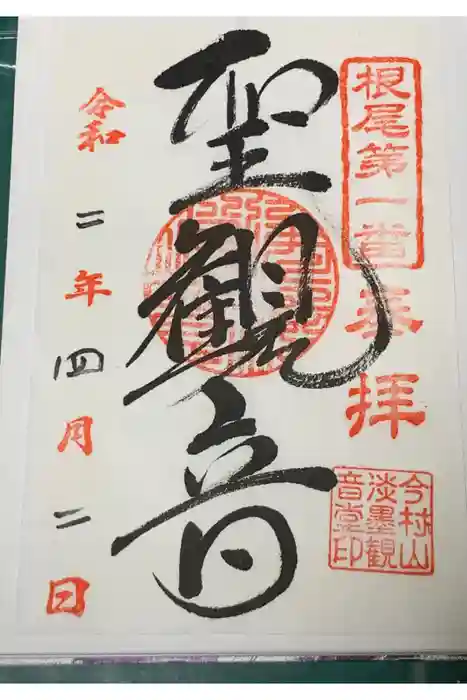 根尾第一番
奉拝
聖観音
令和二年四月二日
今村山
淡墨観
音堂印